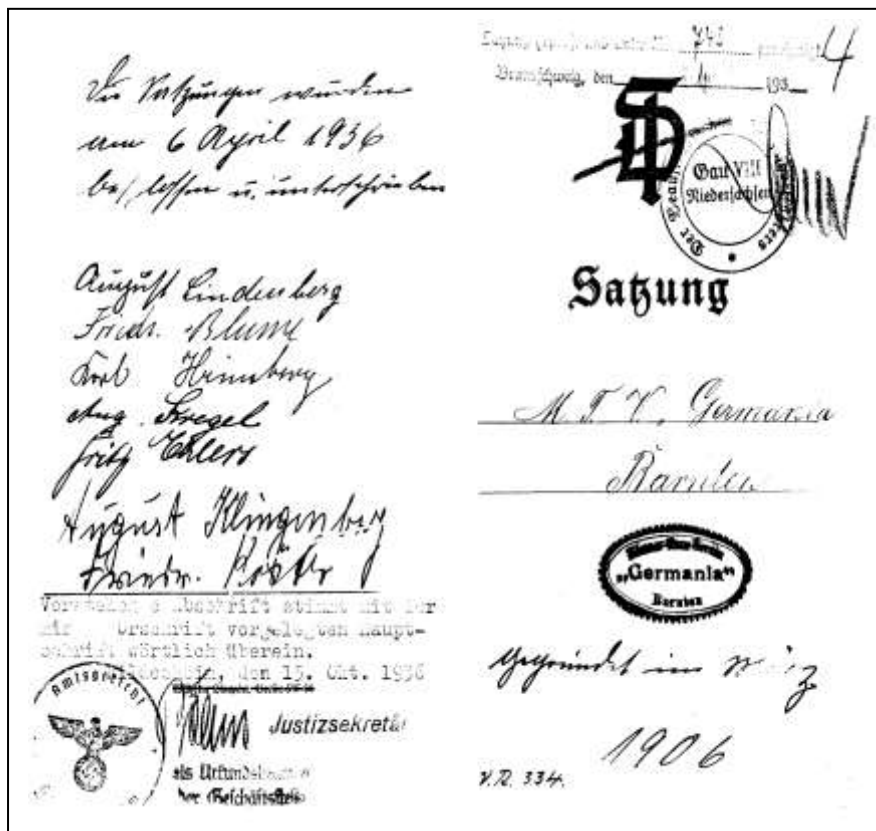 Die Satzungen wurden
am 6 April 1936
beschlossen u. unterschrieben
August Lindenberg
Friedr. Blume
Karl
Aug.
Fritz Ehlers
August Klingenberg
Friedr.
Vorstehende Abschrift stimmt mit der
mir Urschrift vorgelegten Haupt-
schrift wörtlich überein.
Hildesheim, den 15. Okt. 1936
Amtsgericht
Justizsekretär
als Urkundsbeamter
der Geschäftsstelle
742 4
Braunschweig, den 193
Gau VIII
Niedersachsen
Satzung
M. T. V. Germania
Barnten
Männer-Turn-Verein
„Germania“
Barnten
gegründet im März
1906
V.R. 334.